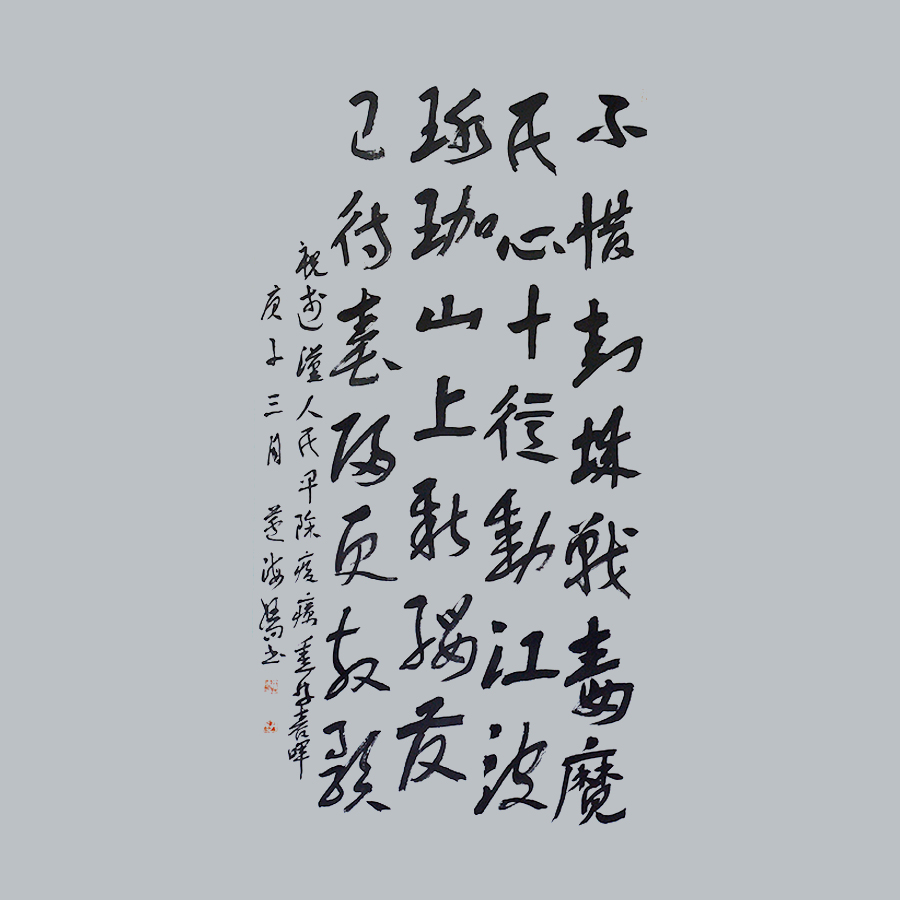 不惜封城戰毒魔
民心十億動江波
珞珈山上新櫻發
已待春陽更放歌
祝武漢人民早除疫癘重春暉
庚子三月 海书